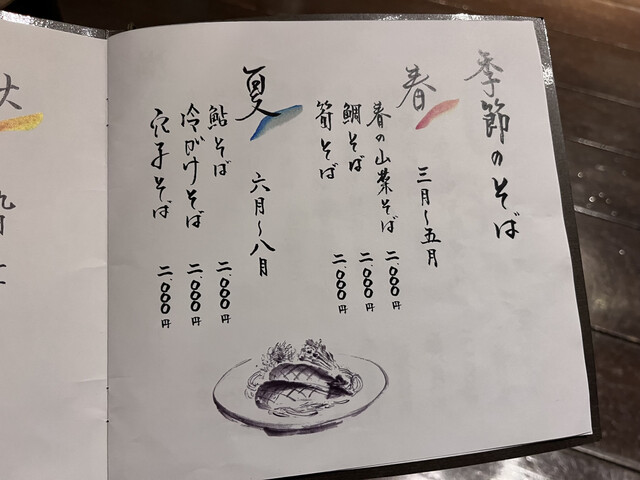 季節のそば
春
三月〜五月
春の山菜そば 二、〇〇〇円
鯛そば 二、〇〇〇円
筍そば 二、〇〇〇円
夏
六月〜八月
鮎そば 二、〇〇〇円
冷がけそば 二、〇〇〇円
穴子そば 二、〇〇〇円